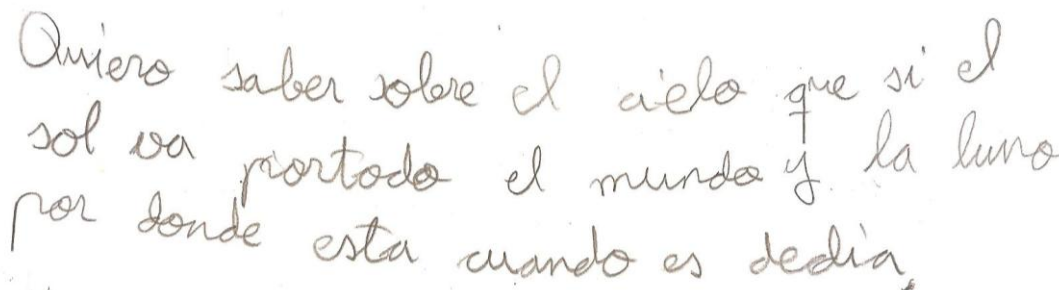 Quiero saber sobre el cielo que si el
sol va portodo el mundo y la luna
por donde esta cuando es dedia.